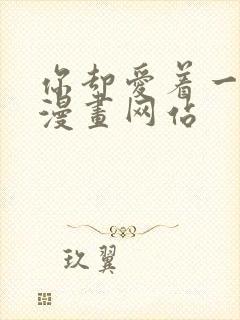 你却爱着一
漫畫网佔
玖翼